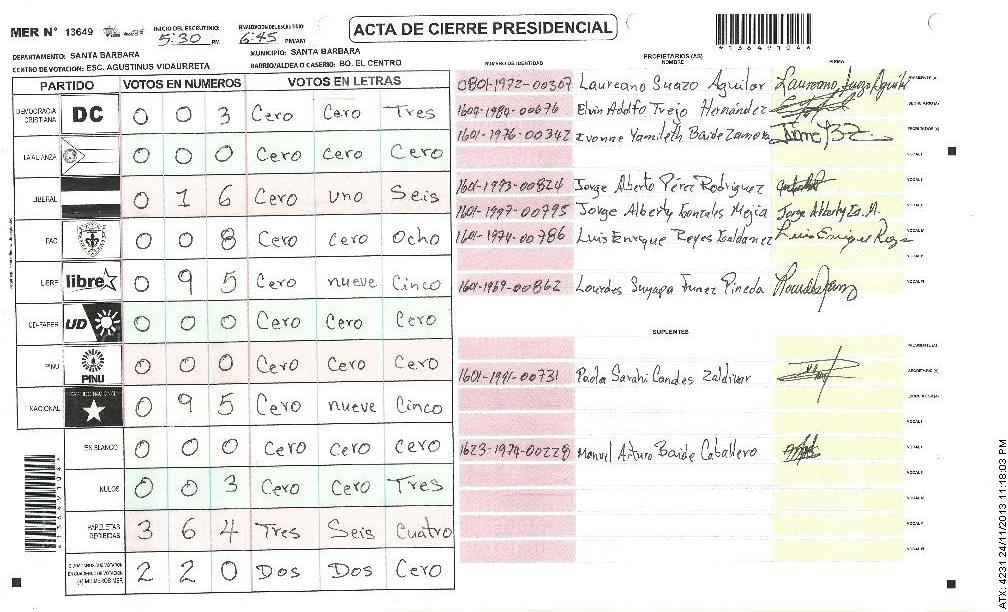 MER N° 13649
INICIO DEL ESCRUTINIO: 5:30 PM
FINALIZACION DEL ESCRUTINIO: 6:45 PM/AM
ACTA DE CIERRE PRESIDENCIAL
4136491044
DEPARTAMENTO: SANTA BARBARA
MUNICIPIO: SANTA BARBARA
CENTRO DE VOTACION: ESC. AGUSTINUS VIDAURRETA
BARRIO/ALDEA O CASERIO: BO. EL CENTRO
PARTIDO VOTOS EN NUMEROS VOTOS EN LETRAS
DEMOCRACIA CRISTIANA DC 0 0 3 Cero Cero Tres
LA ALIANZA 0 0 0 Cero Cero Cero
LIBERAL 0 1 6 Cero uno Seis
PAC 0 0 8 Cero cero Ocho
LIBRE libre 0 9 5 Cero nueve Cinco
UD-FAPER UD 0 0 0 Cero Cero Cero
PINU PINU 0 0 0 Cero Cero Cero
NACIONAL PARTIDO NACIONAL 0 9 5 Cero nueve Cinco
EN BLANCO 0 0 0 Cero Cero Cero
NULOS 0 0 3 Cero Cero Tres
PAPELETAS RECIBIDAS 3 6 4 Tres Seis Cuatro
(+) MIEMBROS MER 2 2 0 Dos Dos Cero
PROPIETARIOS (AS)
NUMERO DE IDENTIDAD NOMBRE FIRMA
0801-1972-00307 Laureano Suazo Aguilar PRESIDENTE (A)
1604-1984-00676 Elvin Adolfo Trejo Hernández SECRETARIO (A)
1601-1976-00342 Ivonne Yamileth Baide Zamora ESCRUTADOR (A)
VOCAL I
1601-1973-00824 Jorge Alberto Pérez Rodriguez
1601-1997-00795 Jorge Alberty Gonzales Mejia
1601-1974-00786 Luis Enrique Reyes Galdamez Luis Enrique Reyes
1601-1969-00862 Lourdes Suyapa Funez Pineda
SUPLENTES
PRESIDENTE (A)
1601-1991-00731 Paola Sarahi Candes Zaldivar SECRETARIO (A)
ESCRUTADOR (A)
1623-1974-00228 Manuel Arturo Baide Caballero
ATX: 4231 24/11/2013 11:18:03 PM